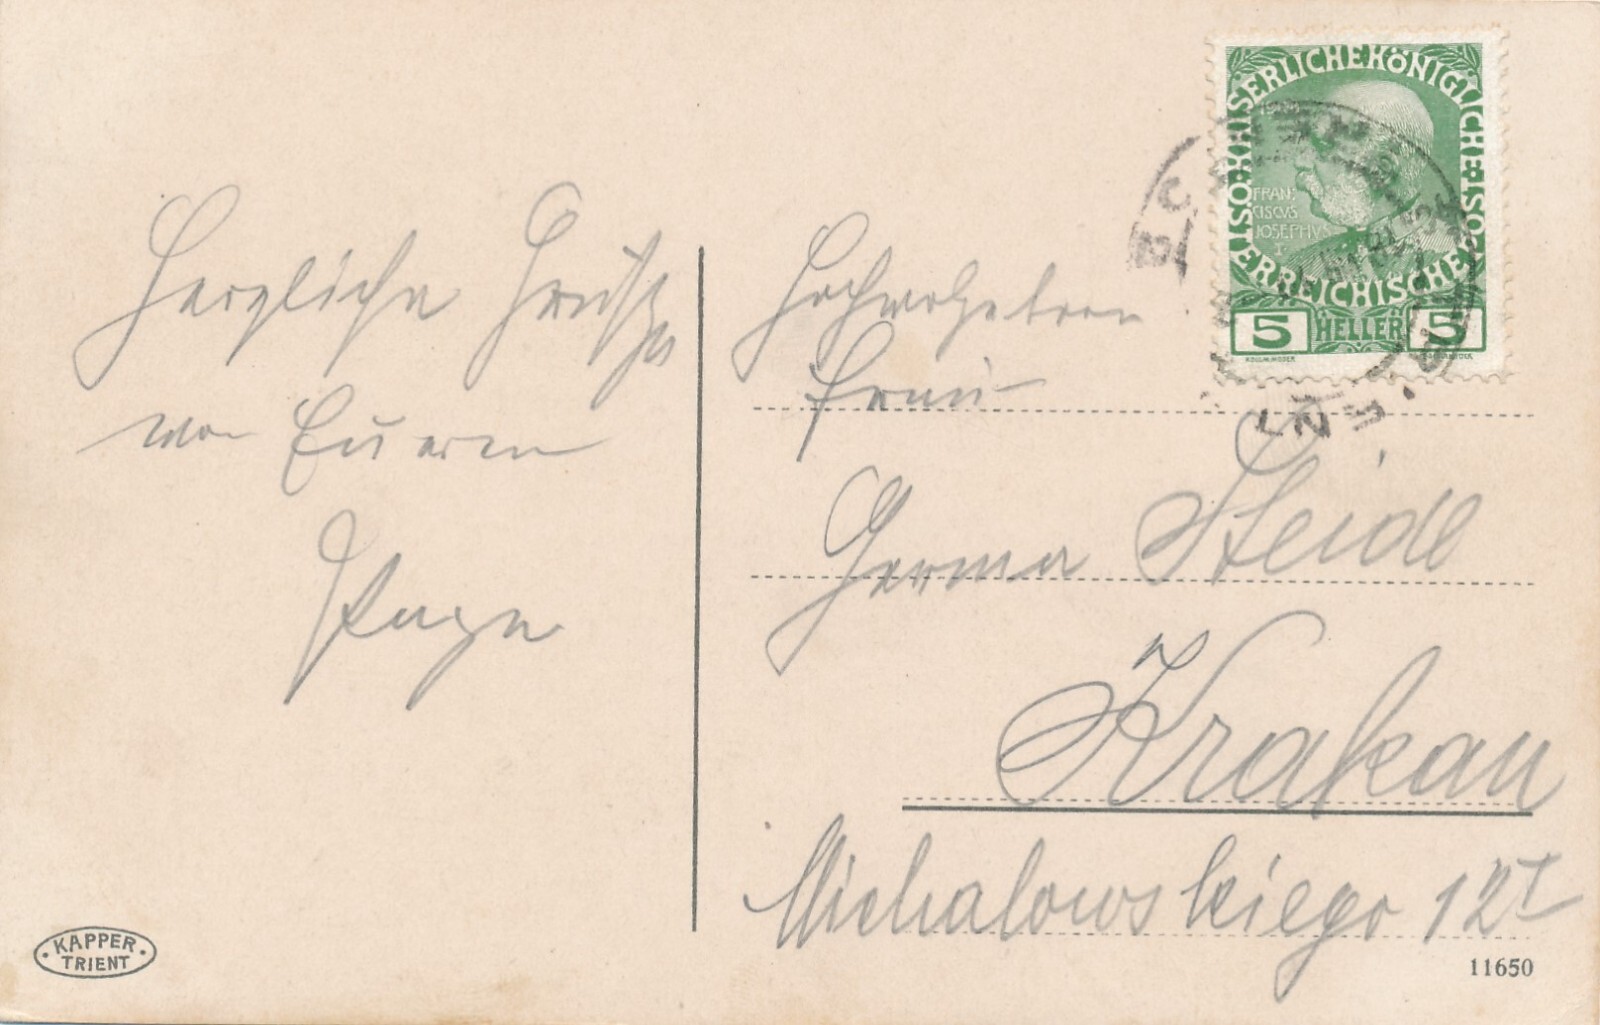 Herzliche Grüße
von Eurem
Hochwohgeboren
Frau
Germa Steidl
Krakau
Michalowskiego 12 I
KAISERLICHE KÖNIGLICHE
ÖSTERREICHISCHE
1908
FRAN-
CISCVS
IOSEPHVS
I·
5 HELLER 5
KAPPER
TRIENT
11650